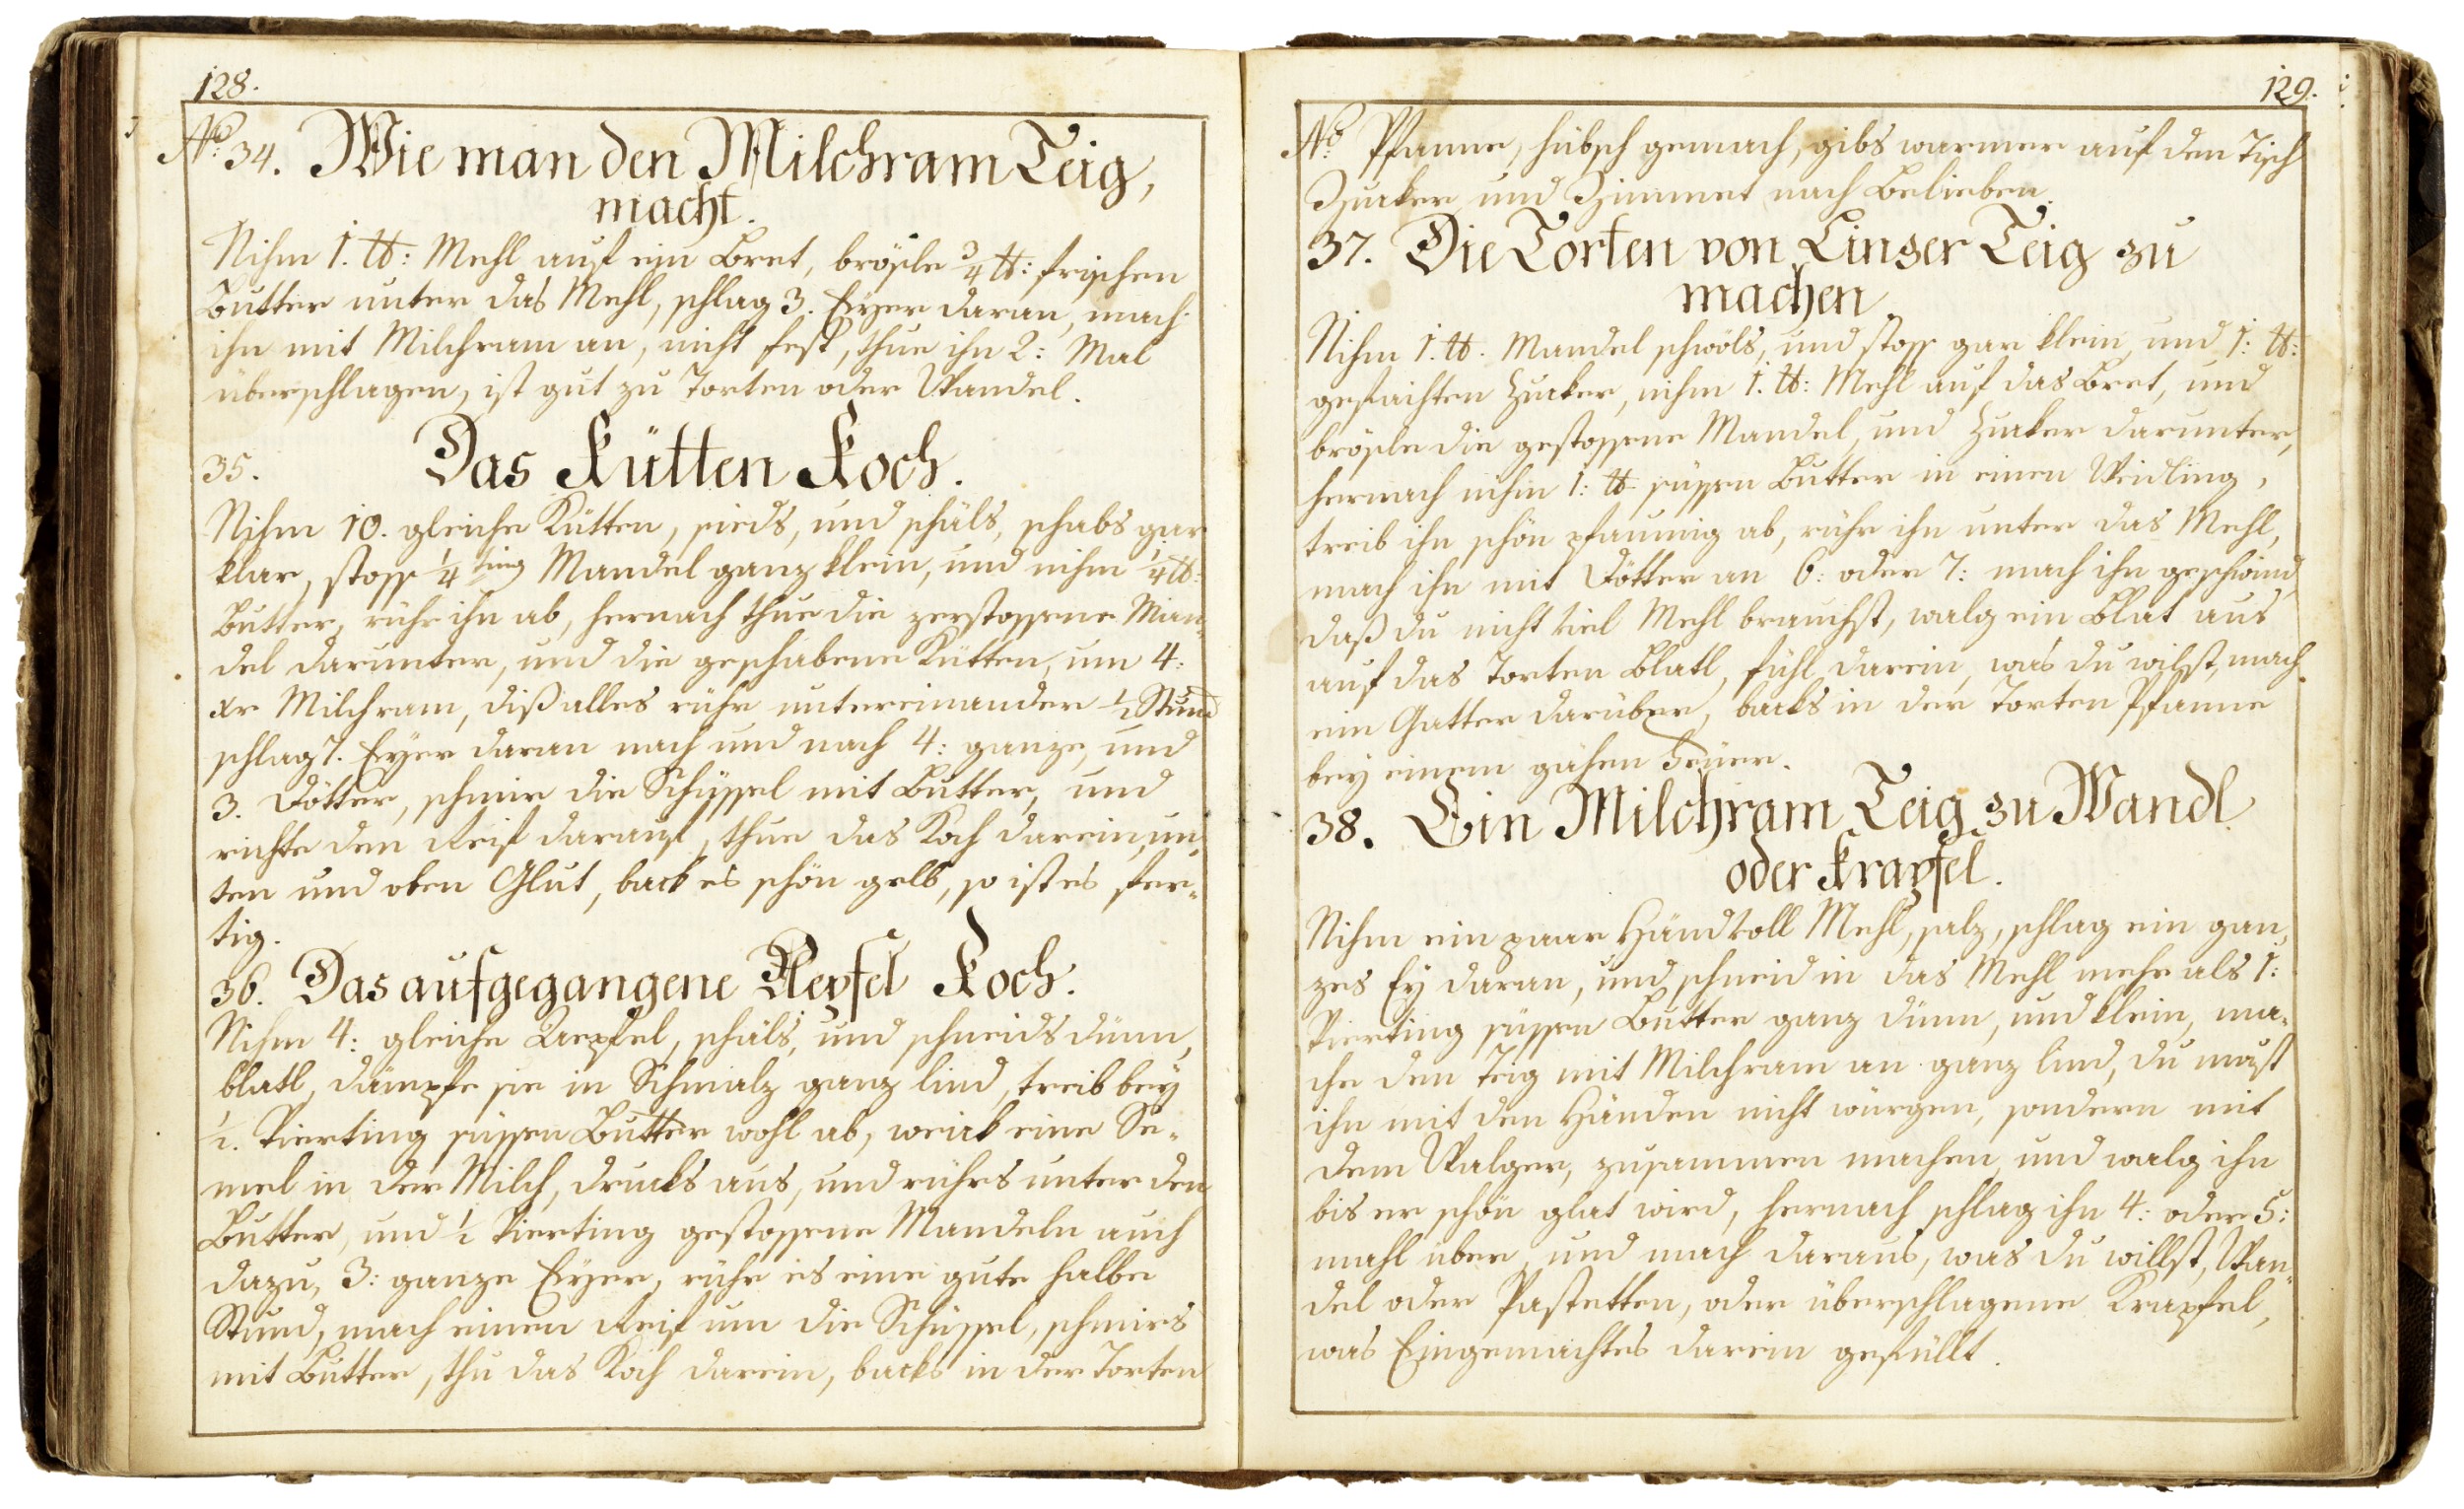 128.
No: 34. Wie man den Milchram Teig,
macht.
Nihm 1. ℔: Mehl auf ein Bret, brösle 3/4 ℔: frischen
Butter unter das Mehl, schlag 3. Eyer daran, mach
ihn mit Milchram an, nicht fest, thue ihn 2: Mal
überschlagen, ist gut zu Torten oder Wandel.
35. Das Kütten Koch.
Nihm 10. gleiche Kütten, sieds, und schäls, schabs gar
klar, stoss 1/4 ting Mandel ganz klein, und nihm 1/4 ℔:
Butter, rühr ihn ab, hernach thue die zerstossene Man„
del darunter, und die geschabene Kütten, um 4:
xr Milchram, diß alles rühr untereinander 1/2 Stund
schlag 7. Eyer daran nach und nach 4: ganze, und
3. Dötter, schmir die Schüssel mit Butter, und
richte den Reif darauf, thue das Koch darein, un„
ten und oben Glut, back es schön gelb, so ist es fer„
tig.
36. Das aufgegangene Aepfel Koch.
Nihm 4: gleiche Aepfel, schäls, und schneids dünn,
blatl, dämpfe sie in Schmalz ganz lind, treib bey
1/2. Vierting süssen Butter wohl ab, weick eine Se„
mel in der Milch, drucks aus, und rührs unter den
Butter, und 1/2 Vierting gestossene Mandeln auch
dazu, 3: ganze Eyer, rühr es eine gute halbe
Stund, mach einen Reif um die Schüssel, schmirs
mit Butter, thu das Koch darein, backs in der Torten
129.
No: Pfanne, hübsch gemach, gibs warmer auf den Tisch
Zucker und Zimmet nach Belieben.
37. Die Torten von Linzer Teig zu
machen.
Nihm 1. ℔. Mandel schwöls, und stoss gar klein, und 1: ℔:
gefaichten Zucker, nihm 1. ℔: Mehl auf das Bret, und
brösle die gestossene Mandel, und Zucker darunter,
hernach nihm 1: ℔ süssen Butter in einen Weidling,
treib ihn schön pfaumig ab, rühr ihn unter das Mehl,
mach ihn mit Dötter an 6: oder 7: mach ihn geschwind
daß du nicht viel Mehl brauchst, walg ein Blat aus
auf das Torten Blatl, fühl darein, was du wilst, mach
ein Gatter darüber, backs in der Torten Pfanne
bey einem gähen Feüer.
38. Ein Milchram Teig zu Wandl
oder Krapfel.
Nihm ein paar Händvoll Mehl, salz, schlag ein gan„
zes Ey daran, und schneid in das Mehl mehr als 1:
Vierting süssen Butter ganz dünn, und klein, ma„
che den Teig mit Milchram an ganz lind, du must
ihn mit den Händen nicht würgen, sondern mit
dem Walger, zusammen machen, und walg ihn
bis er schön glat wird, hernach schlag ihn 4: oder 5:
mahl über, und mach daraus, was du willst, Wan„
del oder Pastetten, oder überschlagene Krapfel,
was Eingemachtes darein gefüllt.